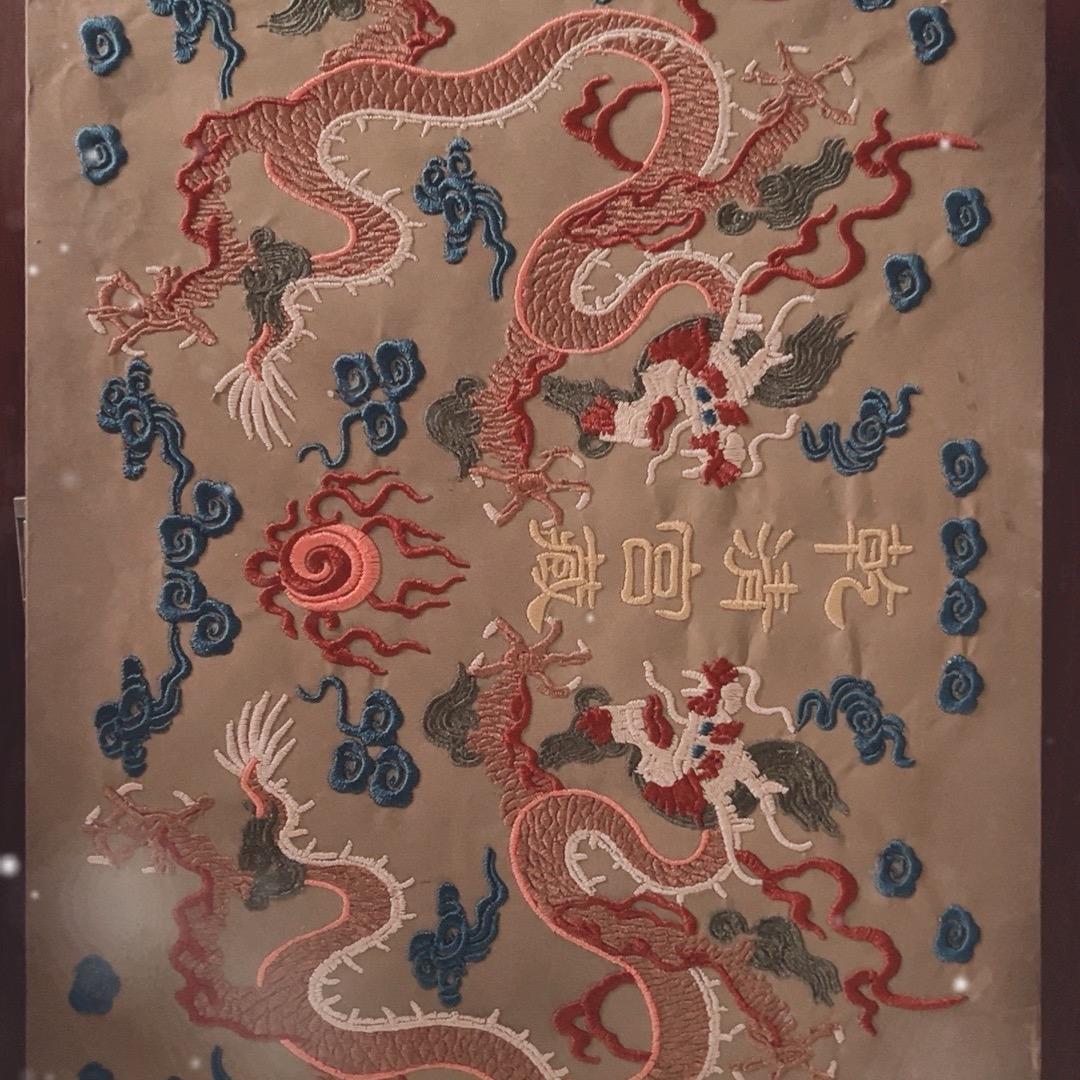 乾清宮藏